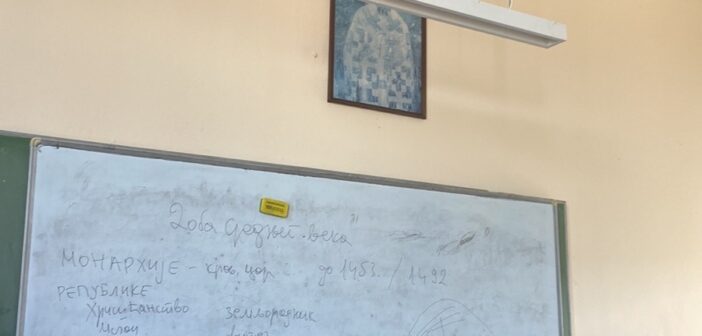 Доба средњег века
МОНАРХИЈЕ - краљ, цар до 1453. / 1492
РЕПУБЛИКЕ
Хришћанство земљорадник